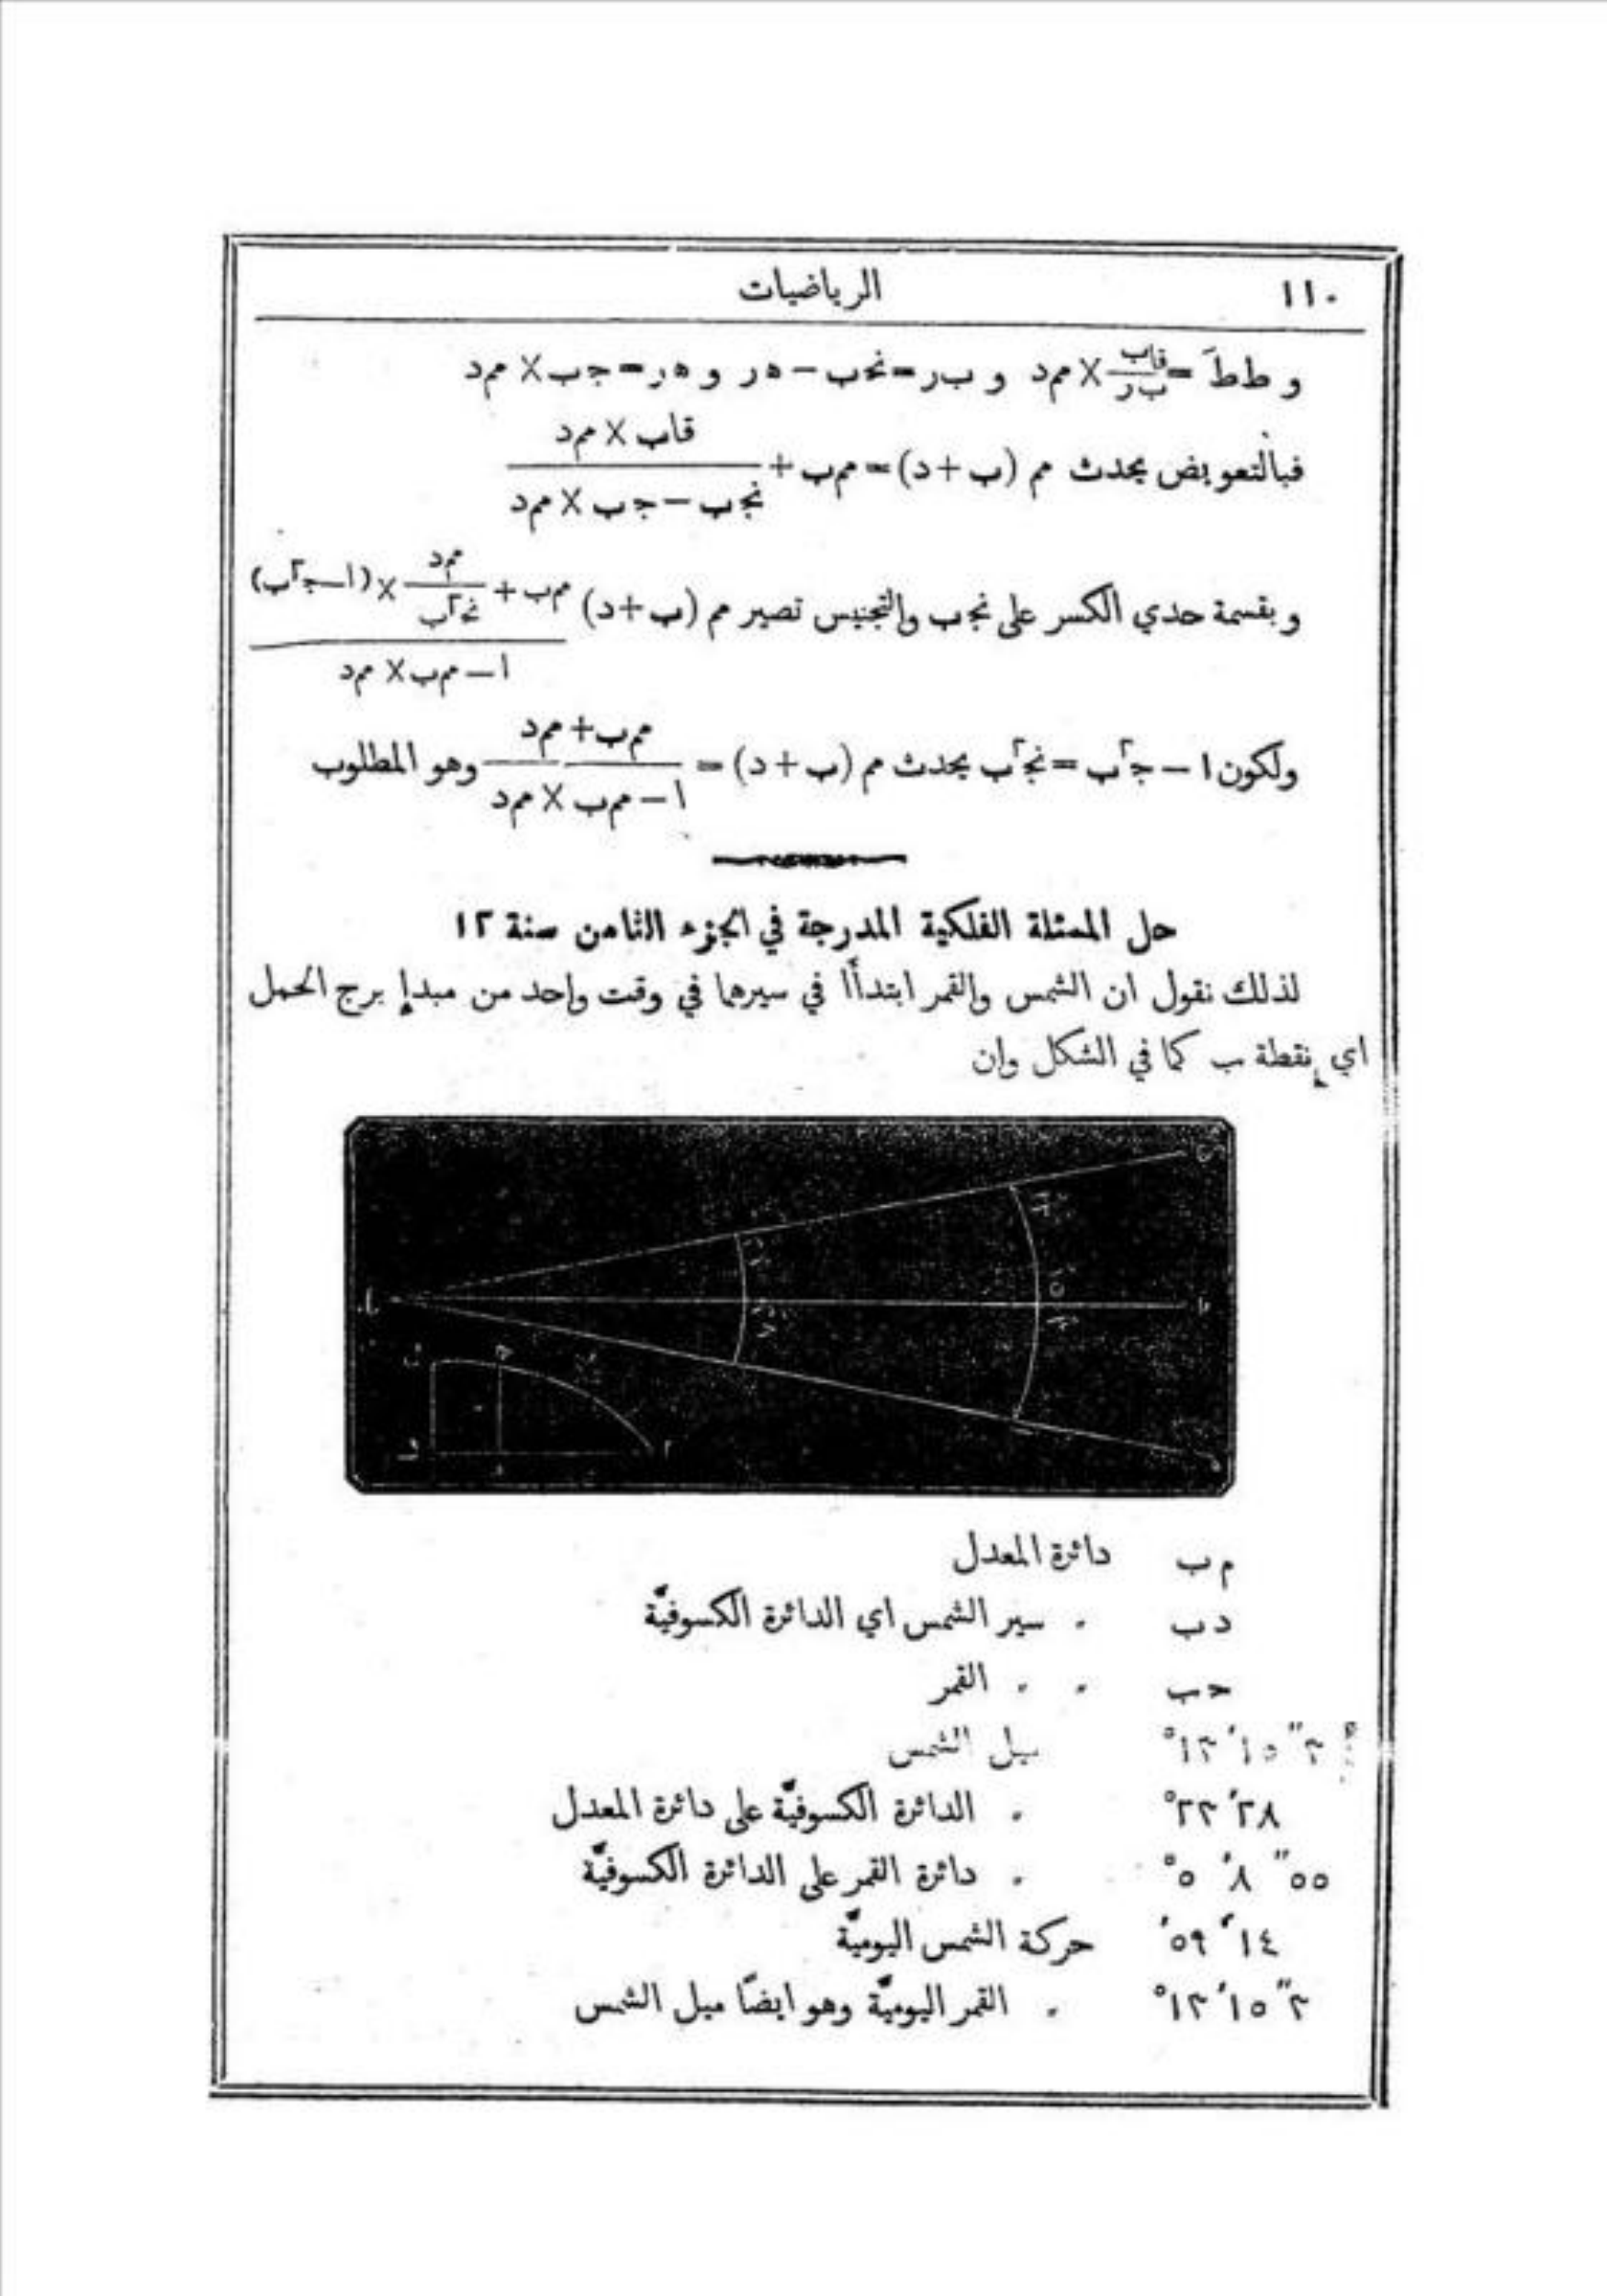 ١١٠
الرياضيات
و ططَ = قاب/ب ر × مم د و ب ر = نجب − ه ر و ه ر = جب × مم د
فبالتعويض يحدث مم (ب + د) = مم ب + (قاب × مم د)/(نجب − جب × مم د)
وبقسمة حدي الكسر على نجب والتجنيس تصير مم (ب + د) (مم ب + مم د/نج٢ب × (١ − ج٢ب))/(١ − مم ب × مم د)
ولكون ١ − ج٢ب = نج٢ب يحدث مم (ب + د) = (مم ب + مم د)/(١ − مم ب × مم د) وهو المطلوب
حل المسئلة الفلكية المدرجة في الجزء الثامن سنة ١٢
لذلك نقول ان الشمس والقمر ابتدأَا في سيرها في وقت واحد من مبدإِ برج الحمل
اي نقطة ب كما في الشكل وان
م ب دائرة المعدل
د ب ״ سير الشمس اي الدائرة الكسوفيَّة
حب ״ ״ القمر
٣ً ١٥َ ١٣° ميل الشمس
٢٨َ ٢٣° ״ الدائرة الكسوفيَّة على دائرة المعدل
٥٥ً ٨َ ٥° ״ دائرة القمر على الدائرة الكسوفيَّة
١٤ً ٥٩َ حركة الشمس اليوميَّة
٣ً ١٥َ ١٣° ״ القمر اليوميَّة وهو ايضًا ميل الشمس